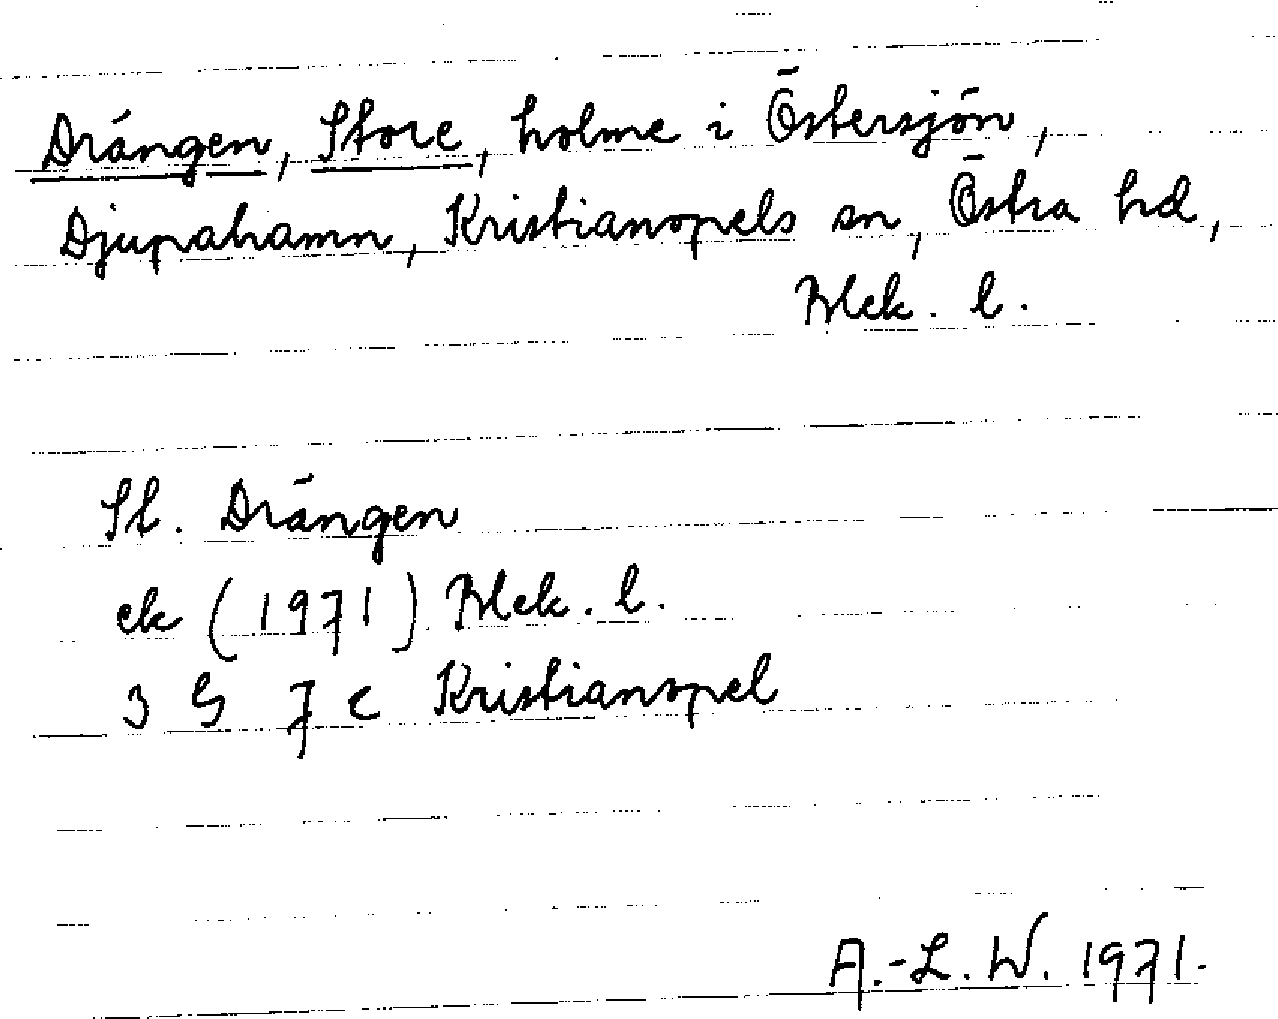 Drängen, Store, holme i Östersjön,
Djupahamn, Kristianopels sn, Östra hd,
Blek. l.
St. Drängen
ek (1971) Blek. l.
3 G 7 c Kristianopel
A.-L. W. 1971.